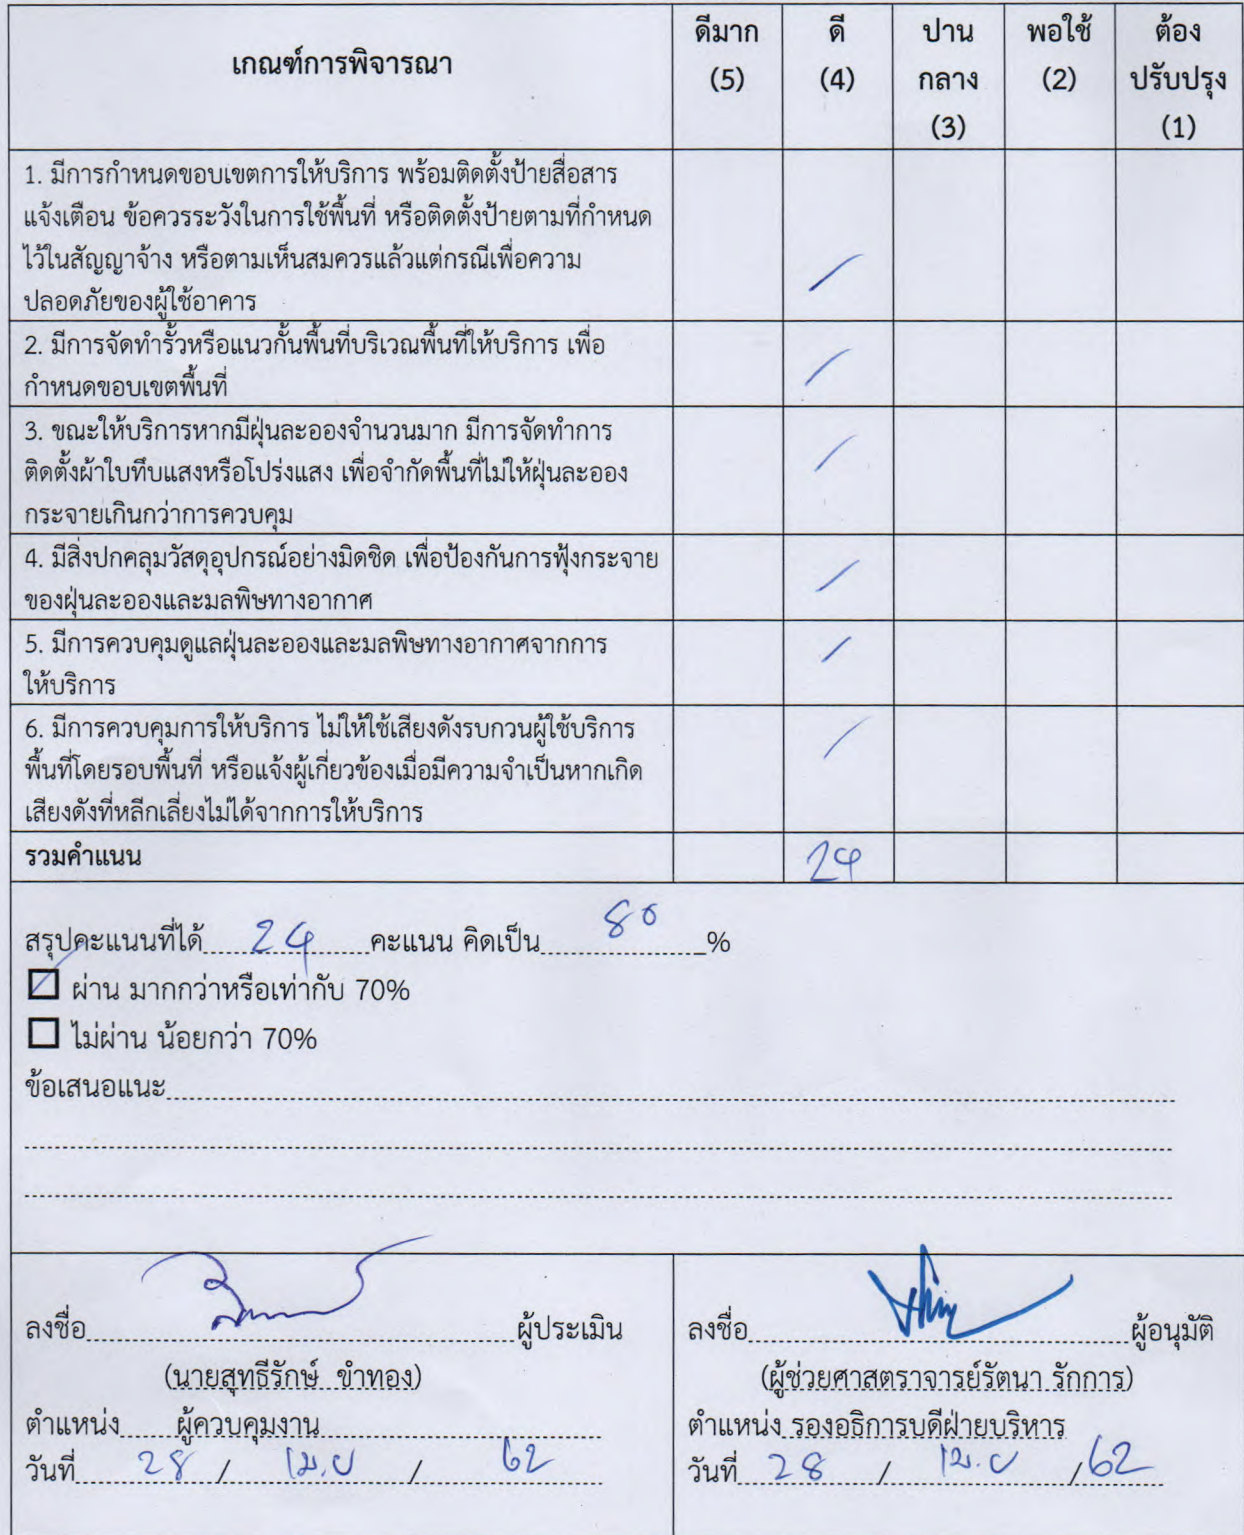 เกณฑ์การพิจารณา
ดีมาก
(5)
ดี
(4)
ปาน
กลาง
(3)
พอใช้
(2)
ต้อง
ปรับปรุง
(1)
1. มีการกำหนดขอบเขตการให้บริการ พร้อมติดตั้งป้ายสื่อสาร
แจ้งเตือน ข้อควรระวังในการใช้พื้นที่ หรือติดตั้งป้ายตามที่กำหนด
ไว้ในสัญญาจ้าง หรือตามเห็นสมควรแล้วแต่กรณีเพื่อความ
ปลอดภัยของผู้ใช้อาคาร
2. มีการจัดทำรั้วหรือแนวกั้นพื้นที่บริเวณพื้นที่ให้บริการ เพื่อ
กำหนดขอบเขตพื้นที่
3. ขณะให้บริการหากมีฝุ่นละอองจำนวนมาก มีการจัดทำการ
ติดตั้งผ้าใบทึบแสงหรือโปร่งแสง เพื่อจำกัดพื้นที่ไม่ให้ฝุ่นละออง
กระจายเกินกว่าการควบคุม
4. มีสิ่งปกคลุมวัสดุอุปกรณ์อย่างมิดชิด เพื่อป้องกันการฟุ้งกระจาย
ของฝุ่นละอองและมลพิษทางอากาศ
5. มีการควบคุมดูแลฝุ่นละอองและมลพิษทางอากาศจากการ
ให้บริการ
6. มีการควบคุมการให้บริการ ไม่ให้ใช้เสียงดังรบกวนผู้ใช้บริการ
พื้นที่โดยรอบพื้นที่ หรือแจ้งผู้เกี่ยวข้องเมื่อมีความจำเป็นหากเกิด
เสียงดังที่หลีกเลี่ยงไม่ได้จากการให้บริการ
รวมคำแนน 24
สรุปคะแนนที่ได้ 24 คะแนน คิดเป็น 80 %
ผ่าน มากกว่าหรือเท่ากับ 70%
ไม่ผ่าน น้อยกว่า 70%
ข้อเสนอแนะ
ลงชื่อ ผู้ประเมิน
(นายสุทธีรักษ์ ขำทอง)
ตำแหน่ง ผู้ควบคุมงาน
วันที่ 28 / เม.ย / 62
ลงชื่อ ผู้อนุมัติ
(ผู้ช่วยศาสตราจารย์รัตนา รักการ)
ตำแหน่ง รองอธิการบดีฝ่ายบริหาร
วันที่ 28 / เม.ย / 62